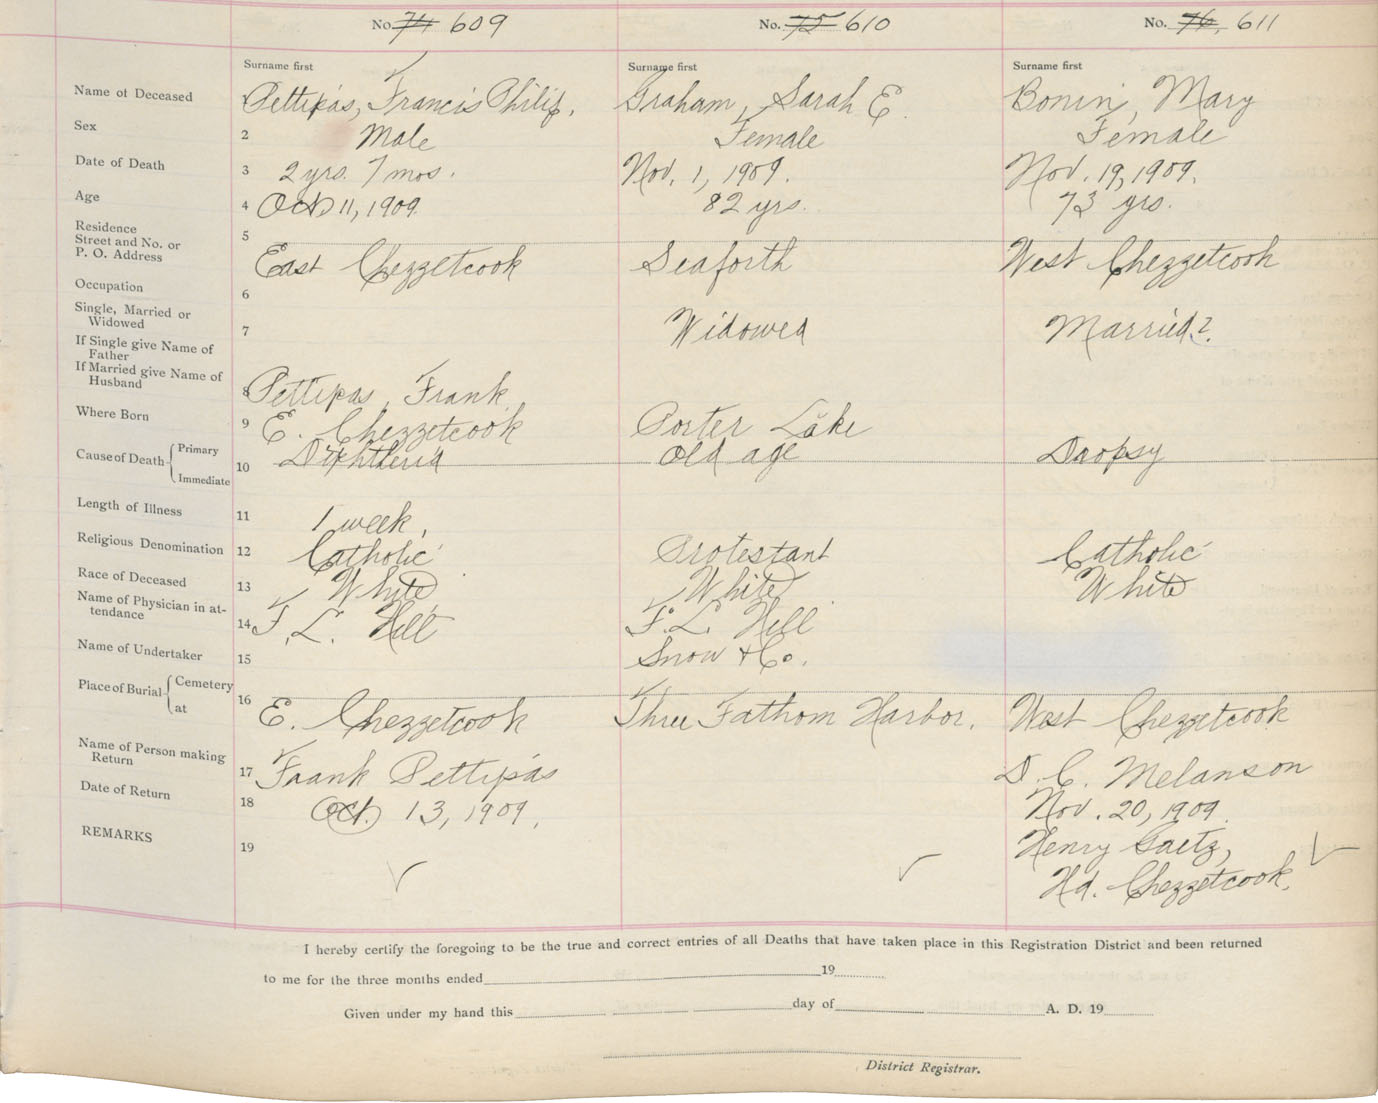 No. 74 609 No. 75 610 No. 76. 611
Surname first Surname first Surname first
Name of Deceased 1 Pettipas, Francis Philip. Graham, Sarah E. Bonin, Mary
Sex 2 Male Female Female
Date of Death 3 2 yrs. 7 mos. Nov. 1, 1909. Nov. 19, 1909.
Age 4 Oct 11, 1909 82 yrs. 73 yrs.
Residence
Street and No. or
P. O. Address 5 East Chezzetcook Seaforth West Chezzetcook
Occupation 6
Single, Married or
Widowed 7 Widowed Married?
If Single give Name of
Father
If Married give Name of
Husband 8 Pettipas, Frank
Where Born 9 E. Chezzetcook Porter Lake
Cause of Death { Primary Immediate 10 Diphtheria Old age Dropsy
Length of Illness 11 1 week.
Religious Denomination 12 Catholic Protestant Catholic
Race of Deceased 13 White White White
Name of Physician in at-
tendance 14 F. L. Hill F. L. Hill
Name of Undertaker 15 Snow & Co.
Place of Burial { Cemetery at 16 E. Chezzetcook Three Fathom Harbor. West Chezzetcook
Name of Person making
Return 17 Frank Pettipas D. C. Melanson
Date of Return 18 Oct. 13, 1909. Nov. 20, 1909.
REMARKS 19 Henry Gaetz,
Hd. Chezzetcook.
I hereby certify the foregoing to be the true and correct entries of all Deaths that have taken place in this Registration District and been returned
to me for the three months ended 19
Given under my hand this day of A. D. 19
District Registrar.